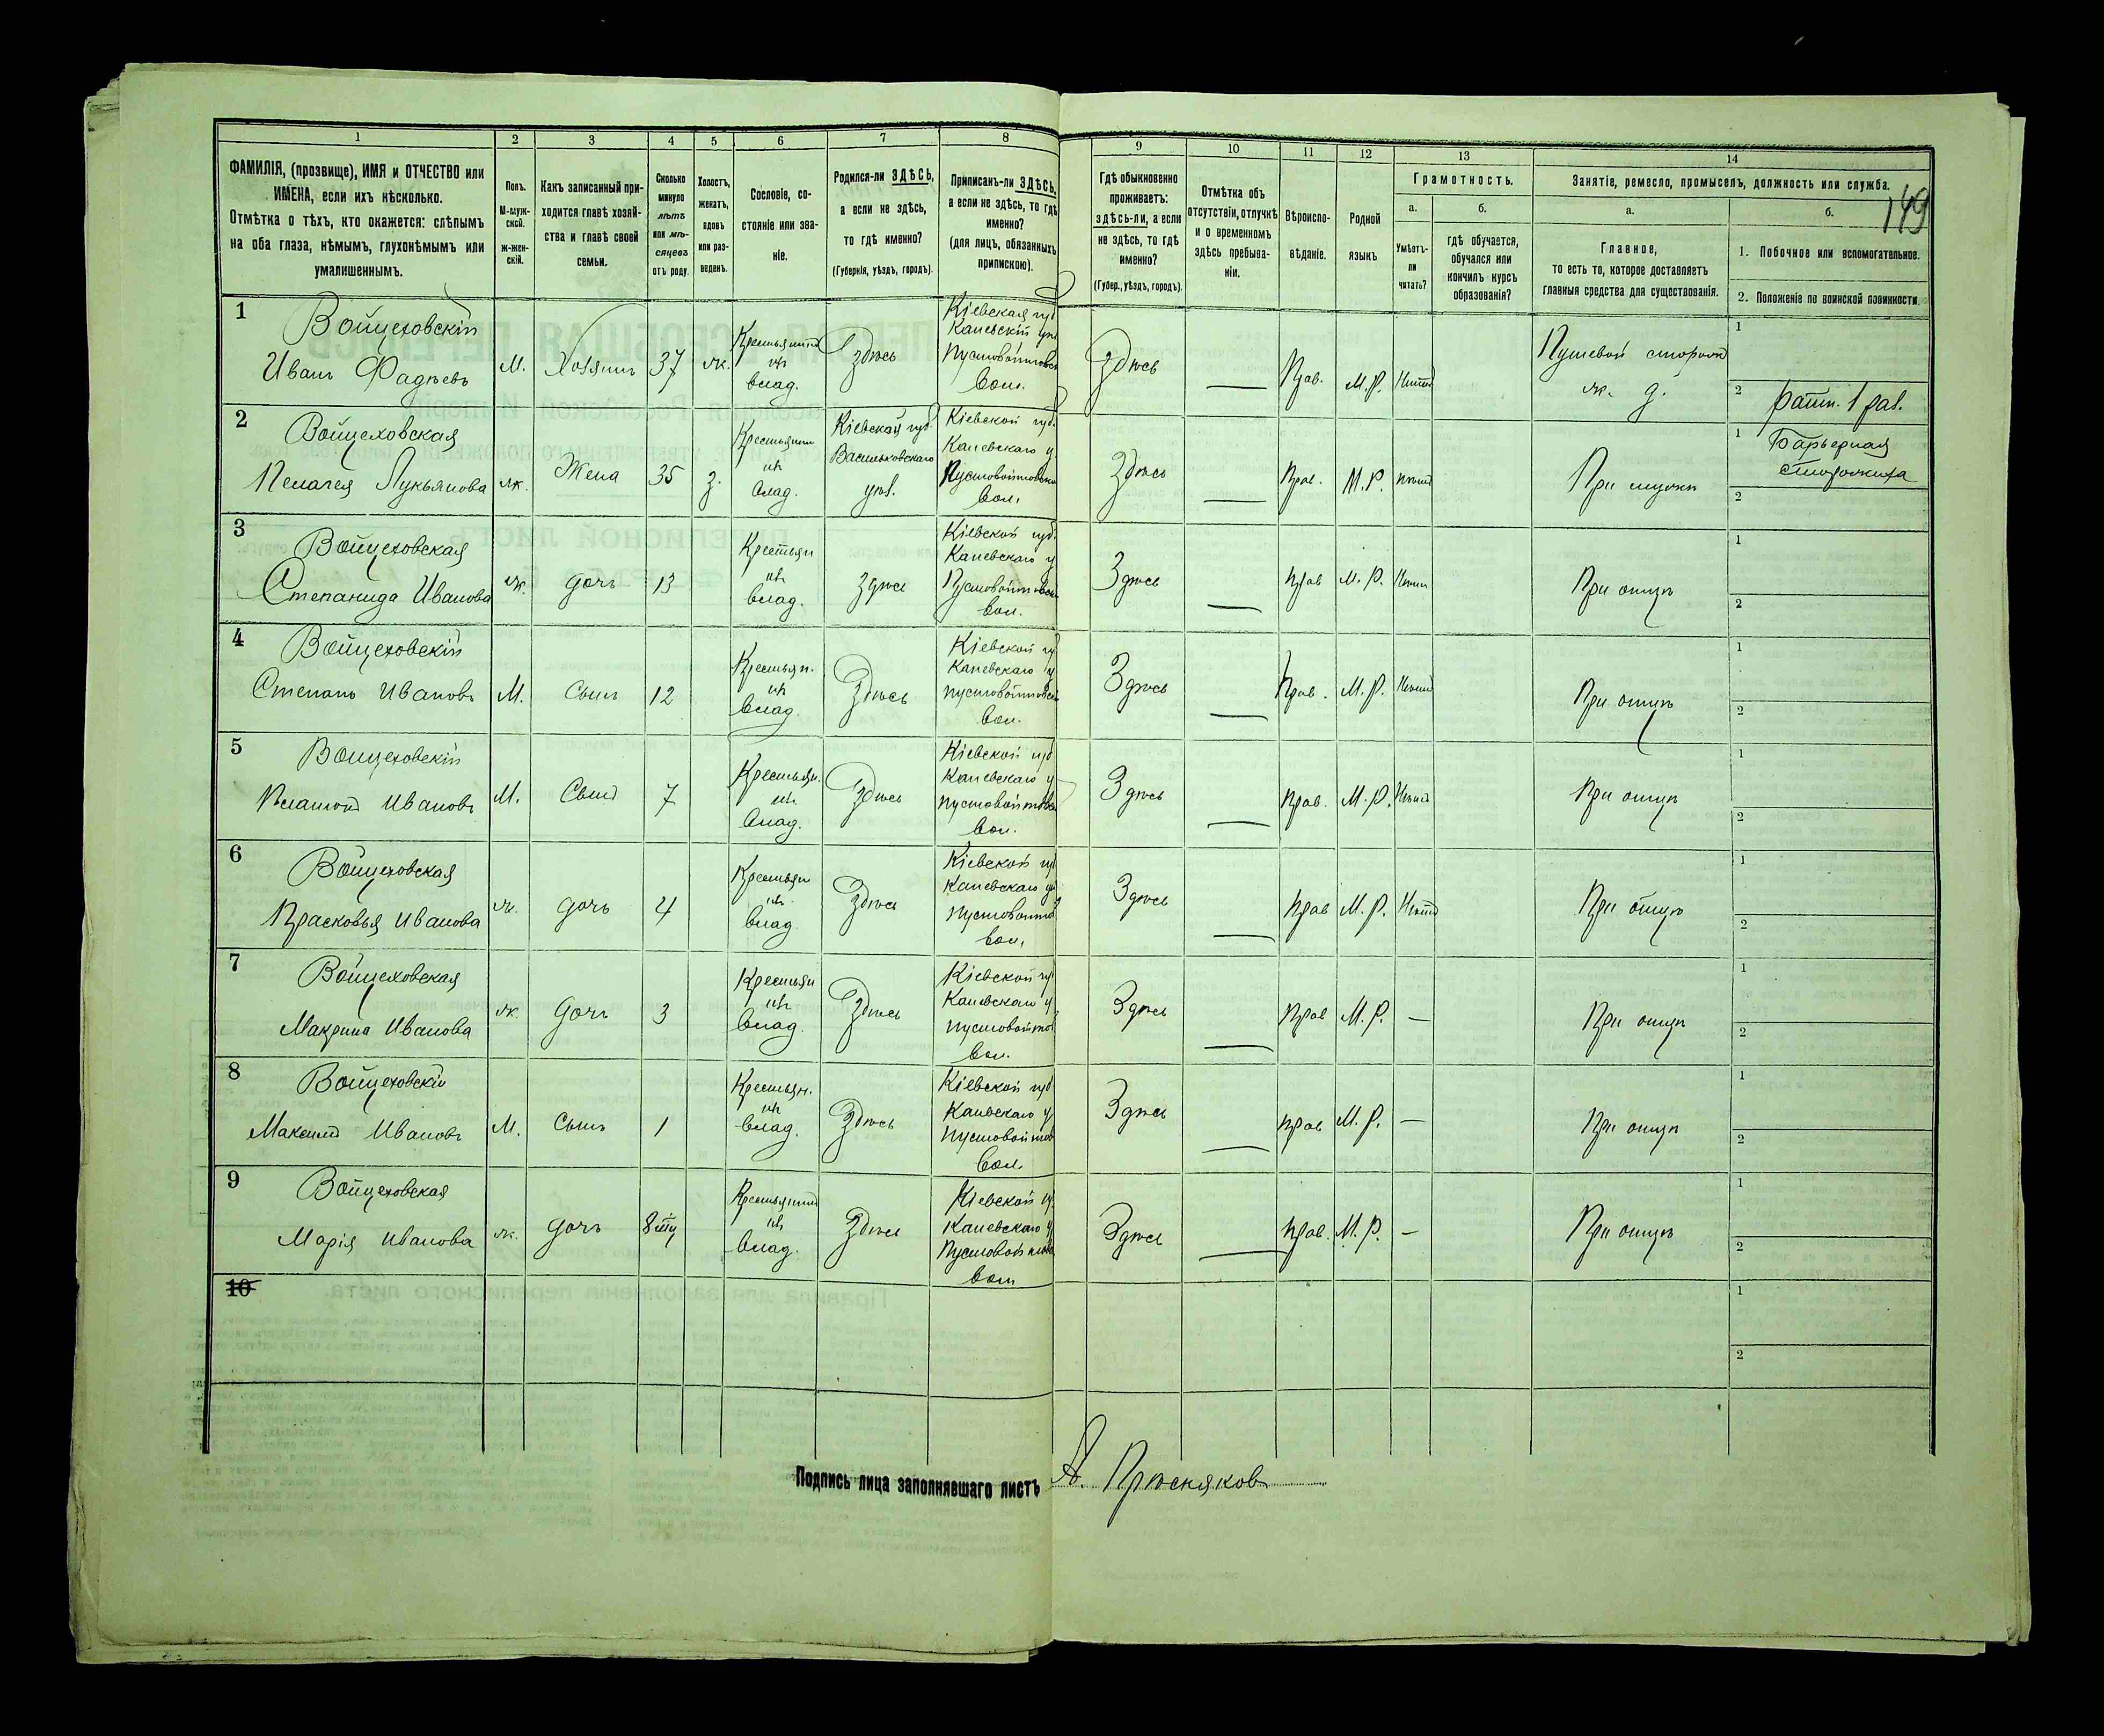 149
1 2 3 4 5 6 7 8 9 10 11 12 13 14
ФАМИЛІЯ, (прозвище), ИМЯ и ОТЧЕСТВО или
ИМЕНА, если ихъ нѣсколько.
Отмѣтка о тѣхъ, кто окажется: слѣпымъ
на оба глаза, нѣмымъ, глухонѣмымъ или
умалишеннымъ.
Полъ.
М-муж-
ской.
ж-жен-
скій.
Какъ записанный при-
ходится главѣ хозяй-
ства и главѣ своей
семьи.
Сколько
минуло
лѣтъ
или мѣ-
сяцевъ
отъ роду.
Холостъ,
женатъ,
вдовъ
или раз-
веденъ.
Сословіе, со-
стояніе или зва-
ніе.
Родился-ли ЗДѢСЬ,
а если не здѣсь,
то гдѣ именно?
(Губернія, уѣздъ, городъ).
Приписанъ-ли ЗДѢСЬ,
а если не здѣсь, то гдѣ
именно?
(для лицъ, обязанныхъ
припискою).
Гдѣ обыкновенно
проживаетъ:
здѣсь-ли, а если
не здѣсь, то гдѣ
именно?
(Губер., уѣздъ, городъ).
Отмѣтка объ
отсутствіи, отлучкѣ
и о временномъ
здѣсь пребыва-
ніи.
Вѣроиспо-
вѣданіе.
Родной
языкъ
Грамотность.
а.
Умѣетъ-
ли
читать?
б.
гдѣ обучается,
обучался или
кончилъ курсъ
образованія?
Занятіе, ремесло, промыселъ, должность или служба.
а.
Главное,
то есть то, которое доставляетъ
главныя средства для существованія.
б.
1. Побочное или вспомогательное.
2. Положеніе по воинской повинности.
1
Войцеховскій
Иванъ Фадѣевъ
М.
Хозяинъ
37
ж.
Крестьянинъ
изъ
влад.
Здѣсь
Кіевская губ
Каневскій уѣз
Пустовойтовск
вол.
Здѣсь
—
Прав.
М.Р.
Нѣтъ
Путевой сторож
ж. д.
1
2 ратн. 1 раз.
2
Войцеховская
Пелагея Лукьянова
ж.
Жена
35
з.
Крестьянин
изъ
влад.
Кіевская губ.
Васильковскаго
уѣз.
Кіевской губ.
Каневскаго у.
Пустовойтовско
вол.
Здѣсь
—
Прав.
М.Р.
нѣтъ
При мужѣ
1 Барьерная
сторожиха
2
3
Войцеховская
Степанида Иванова
ж.
дочь
13
Крестьян
изъ
влад.
здѣсь
Кіевской губ.
Каневскаго у
Пустовойтовской
вол.
Здѣсь
—
Прав
М.Р.
Нѣтъ
При отцѣ
1
2
4
Войцеховскій
Степанъ Ивановъ
М.
Сынъ
12
Крестьян.
изъ
влад.
Здѣсь
Кіевской гу
Каневскаго у
пустовойтовской
вол.
Здѣсь
—
Прав.
М.Р.
Нѣтъ
При отцѣ
1
2
5
Войцеховскій
Платонъ Ивановъ
М.
Сынъ
7
Крестьян.
изъ
влад.
Здѣсь
Кіевской губ
Каневскаго у
пустовойтовск
вол.
Здѣсь
—
прав.
М.Р.
Нѣтъ
При отцѣ
1
2
6
Войцеховская
Прасковья Иванова
ж.
дочь
4
Крестьян
изъ
влад.
Здѣсь
Кіевской губ
Каневскаго у
пустовойтов
вол.
Здѣсь
—
прав
М.Р.
Нѣтъ
При отцѣ
1
2
7
Войцеховская
Макрина Иванова
ж.
дочь
3
Крестьян
изъ
влад.
Здѣсь
Кіевской гу
Каневскаго у
пустовойтов
вол.
Здѣсь
—
прав
М.Р.
—
При отцѣ
1
2
8
Войцеховскій
Максимъ Ивановъ
М.
Сынъ
1
Крестьян.
изъ
влад.
Здѣсь
Кіевской губ
Каневскаго у
пустовойтов
вол.
Здѣсь
—
прав
М.Р.
—
При отцѣ
1
2
9
Войцеховская
Марія Иванова
ж.
дочь
8
Крестьянинъ
изъ
влад.
Здѣсь
Кіевской гу.
Каневскаго у
Пустовойтов
вол
Здѣсь
—
прав.
М.Р.
—
При отцѣ
1
2
10
1
2
Подпись лица заполнявшаго листъ А. Прѣсняков